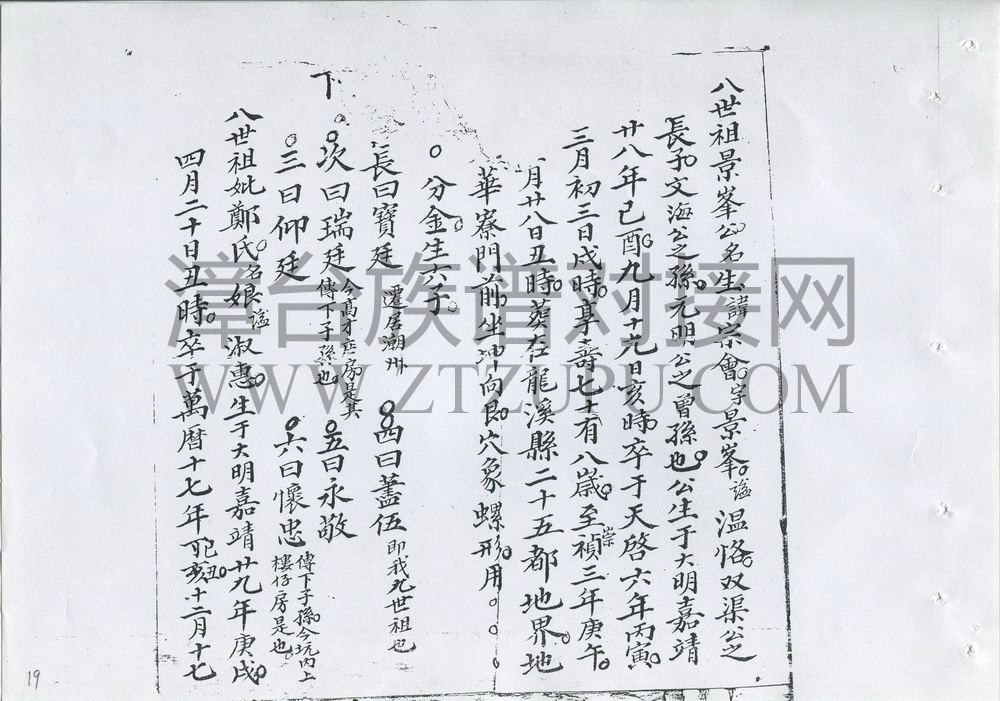 八世祖景峯公名生諱宗會字景峯謚溫恪双渠公之
長孫文海公之孫元明公之曾孫也公生于大明嘉靖
廿八年己酉九月十九日亥時卒于天啓六年丙寅
三月初三日戌時享壽七十有八歲至崇禎三年庚午
月廿八日丑時葬在龍溪縣二十五都地界地
華寮門前坐坤向艮穴象螺形用
分金生六子
長曰寶廷 遷居潮州 四曰蓋伍 即我九世祖也
下
次曰瑞廷 今高才庄房是其傳下子孫也 五曰永敬
三曰仰廷 六曰懷忠 傳下子孫今坑內上樓仔房是也
八世祖妣鄭氏名娘謚淑惠生于大明嘉靖廿九年庚戌
四月二十日丑時卒于萬曆十七年己丑亥十二月十七
漳台族谱对接网
WWW.ZTZUPU.COM
19